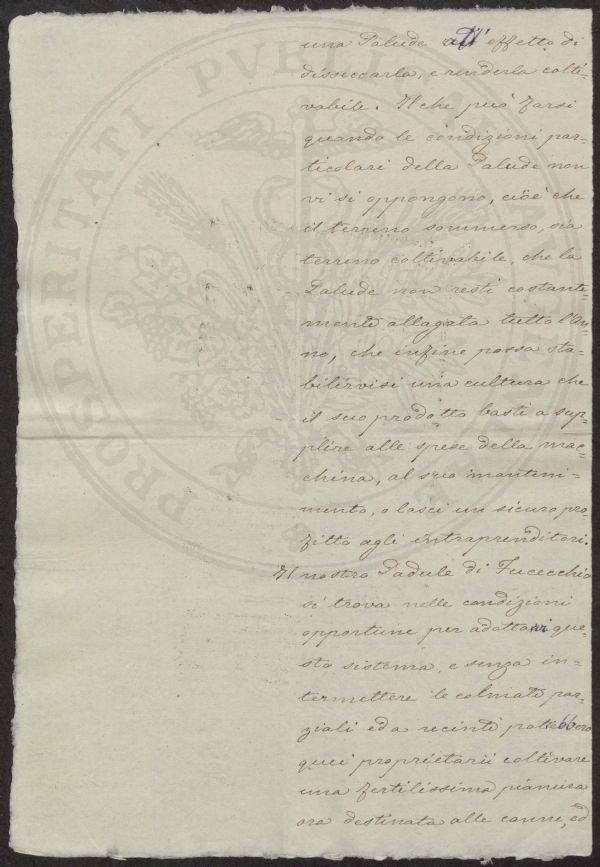 una Palude all' effetto di
disseccarla, e renderla colti=
vabile. Il che può farsi
quando le condizioni par=
ticolari della Palude non
vi si oppongono, cioè che
il terreno sommerso, sia
terreno coltivabile, che la
Palude non resti costante=
mente allagata tutto l'An=
no, che infine possa sta=
bilirvisi una cultura che
il suo prodotto basti a sup=
plire alle spese della mac=
china, al suo manteni=
mento, e lasci un sicuro pro=
fitto agli intraprenditori.
Il nostro Padule di Fucecchio
si trova nelle condizioni
opportune per adottarvi que=
sto sistema, e senza in=
termettere le colmate par=
ziali ed a recinti potrebbero
quei proprietarii coltivare
una fertilissima pianura
ora destinata alle canne, ed
PROSPERITATI PVBLICAE